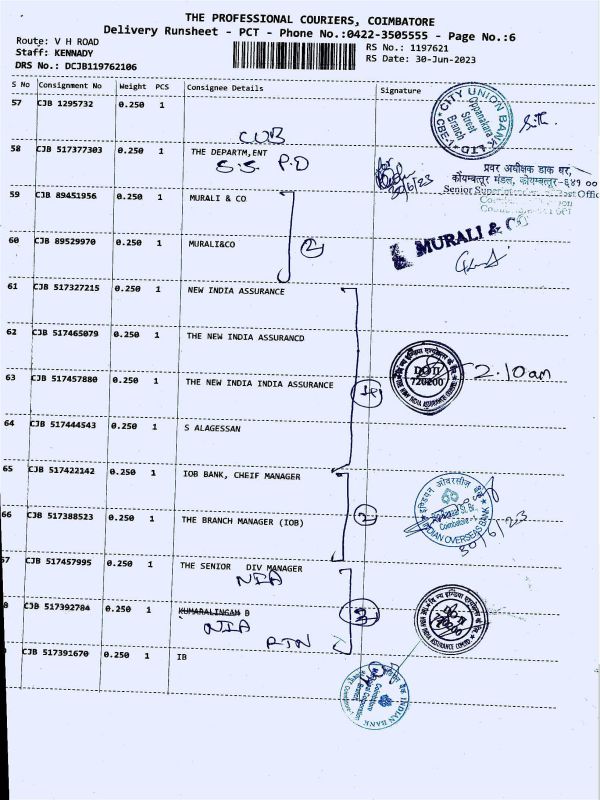 THE PROFESSIONAL COURIERS, COIMBATORE
Delivery Runsheet - PCT - Phone No.:0422-3505555 - Page No.:6
Route: V H ROAD
Staff: KENNADY
DRS No.: DCJB119762106
RS No.: 1197621
RS Date: 30-Jun-2023
S No Consignment No Weight PCS Consignee Details Signature
57 CJB 1295732 0.250 1
CUB
CITY UNION BANK LTD
Street
Branch
CBE-1
58 CJB 517377303 0.250 1 THE DEPARTM,ENT
S.S. P.D
30/6/23
प्रवर अधीक्षक डाक घर,
कोयम्बत्तूर मंडल, कोयम्बत्तूर-६४१ ००
Senior
59 CJB 89451956 0.250 1 MURALI & CO
2
60 CJB 89529970 0.250 1 MURALI&CO
MURALI & CO
61 CJB 517327215 0.250 1 NEW INDIA ASSURANCE
62 CJB 517465079 0.250 1 THE NEW INDIA ASSURANCD
63 CJB 517457880 0.250 1 THE NEW INDIA INDIA ASSURANCE
720200
2.10am
64 CJB 517444543 0.250 1 S ALAGESSAN
65 CJB 517422142 0.250 1 IOB BANK, CHEIF MANAGER
2
66 CJB 517388523 0.250 1 THE BRANCH MANAGER (IOB)
इण्डियन ओवरसीज़ बैंक
INDIAN OVERSEAS BANK
30/6/23
67 CJB 517457995 0.250 1 THE SENIOR DIV MANAGER
NIA
8 CJB 517392784 0.250 1 KUMARALINGAM B
NIA
RTN
CJB 517391670 0.250 1 IB
INDIAN BANK